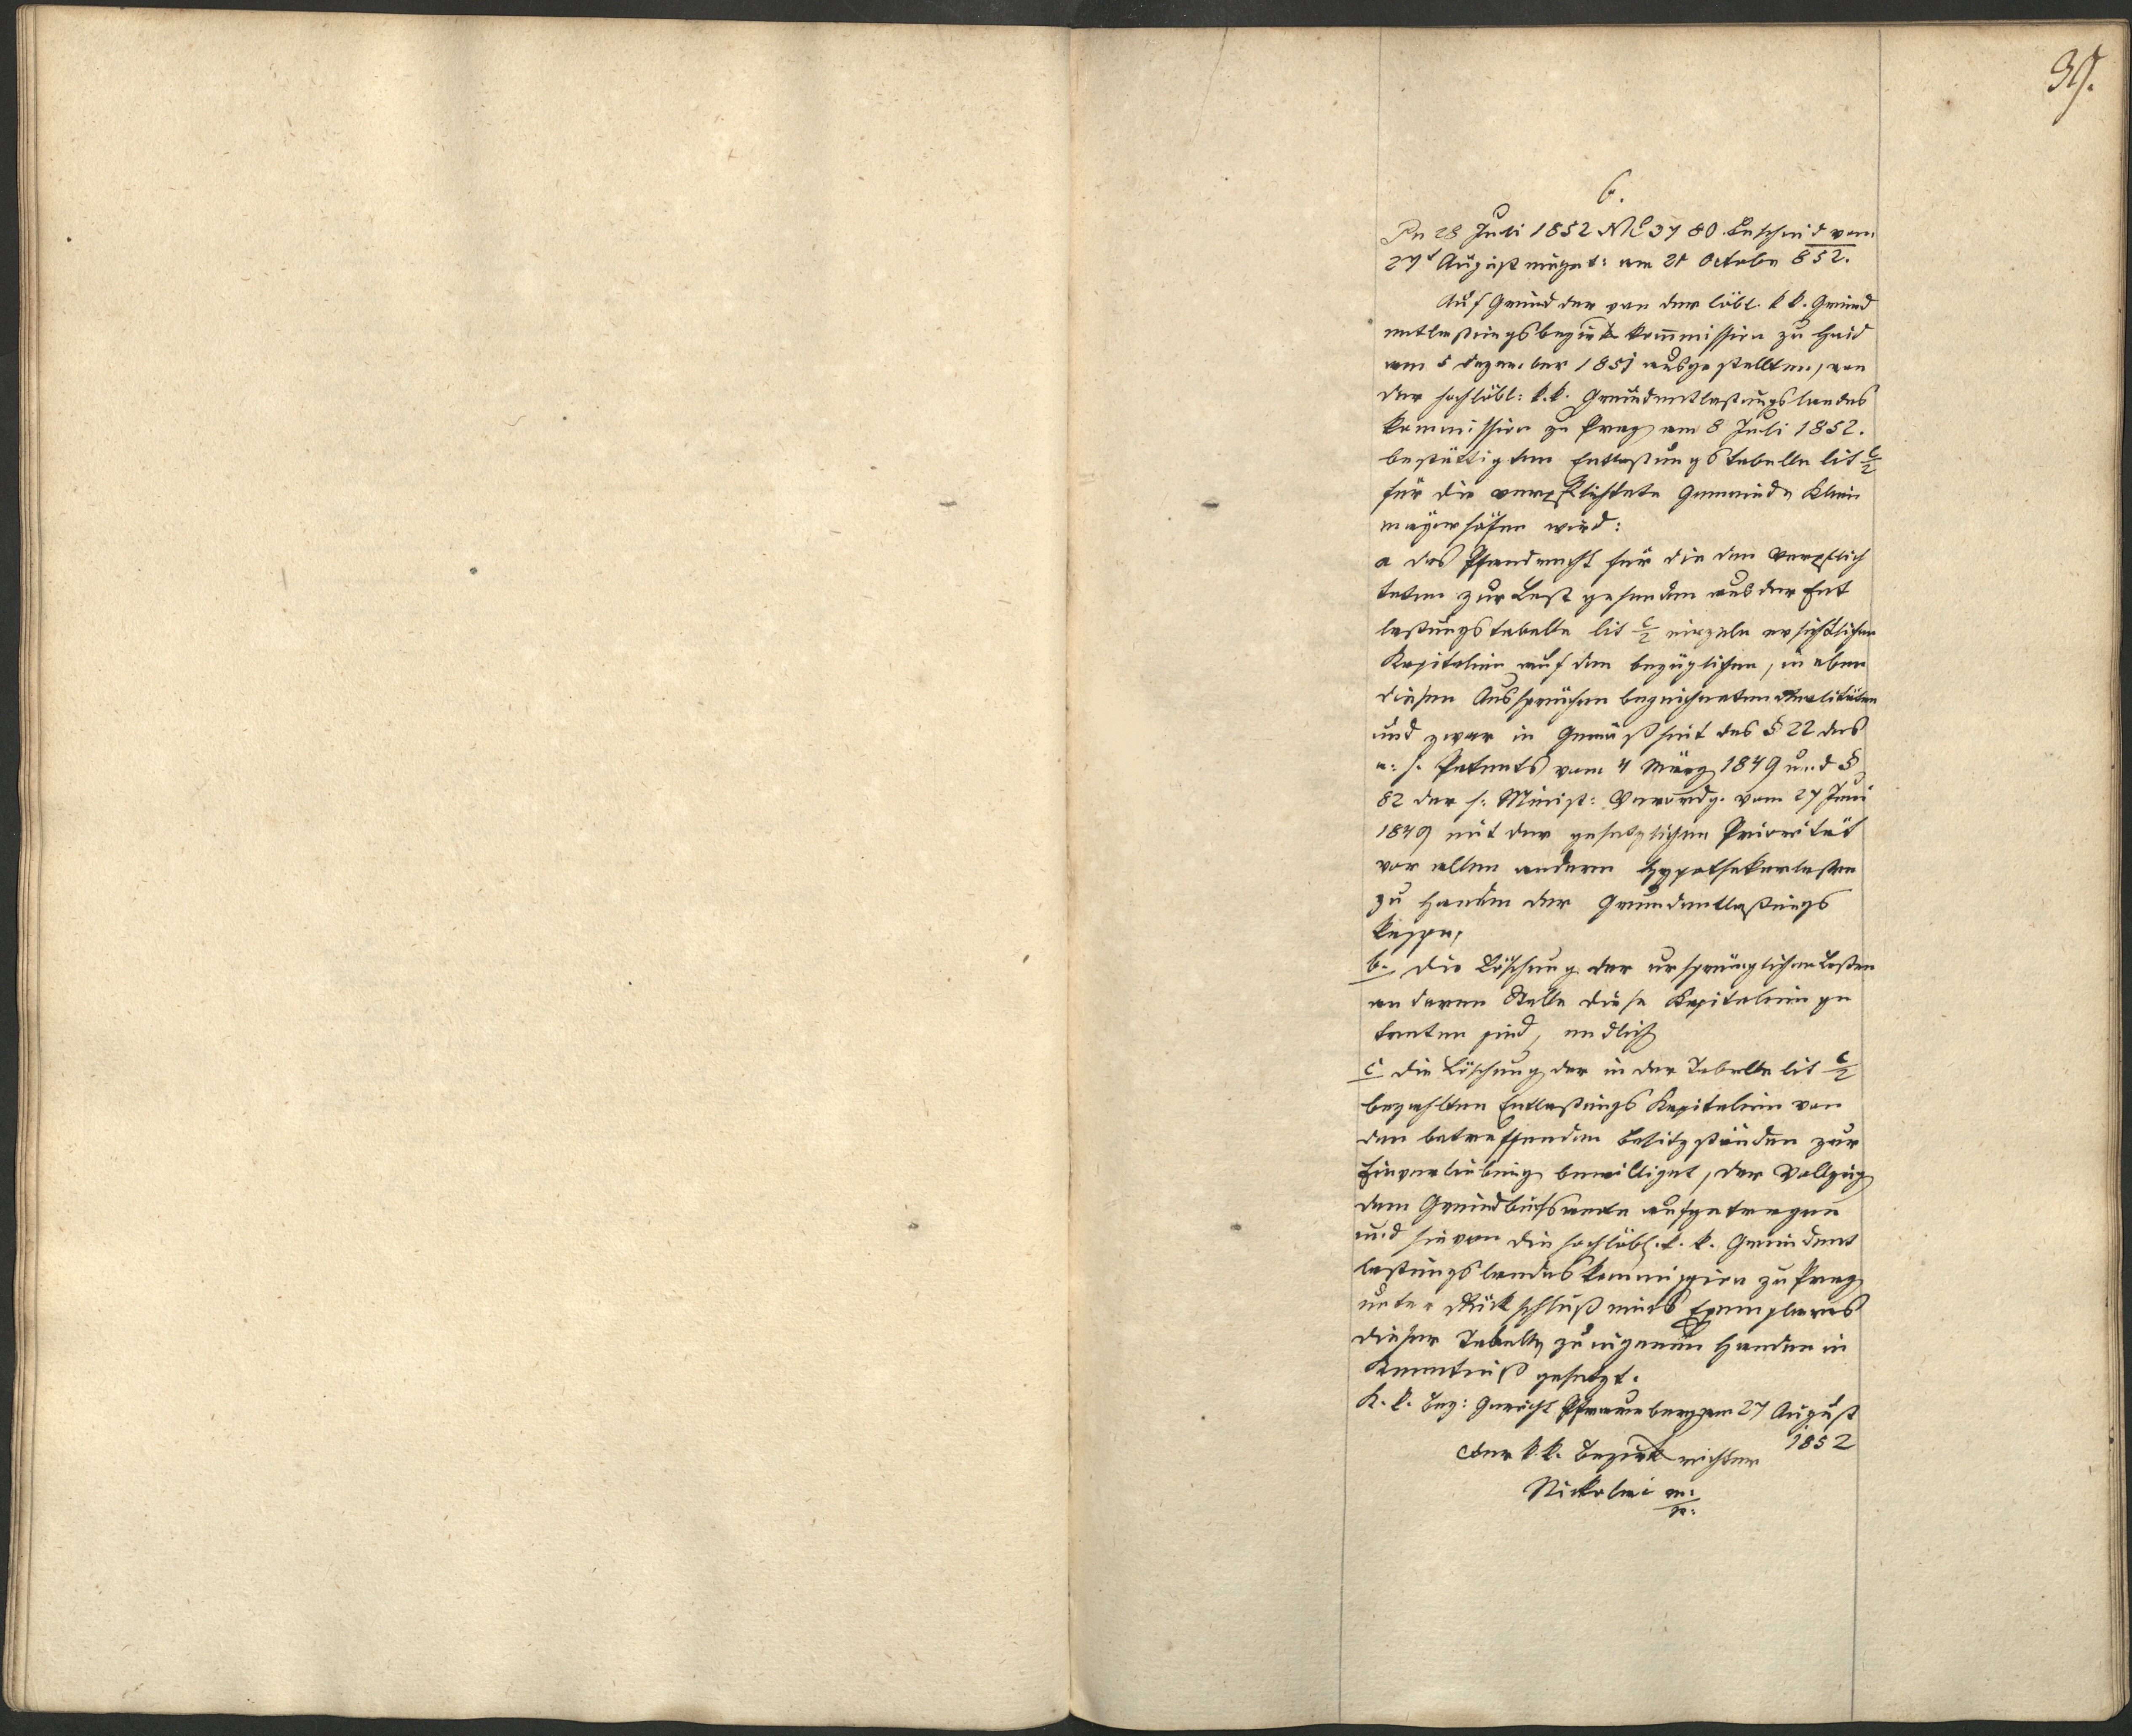 37.
6.
Pn 28 Juli 1852 NE 3780 Bescheid vom
27t August einget: am 21 Octobr 852.
Auf Grund der von der löbl. k k. Grund
entlastungsbezirkskommission zu Haid
am 5 Dezember 1851 ausgestellten, von
der hochlöbl: k. k. Grundentlastungslandes
kommission zu Prag am 8 Juli 1852.
bestättigten Entlastungstabelle lit C/2
für die verpflichtete Gemeinde Klein
mayerhöfen wird:
a das Pfandrecht für die den Verpflich
teten zur Last gehenden aus der Ent
lastungstabelle lit C/2 einzeln ersichtlichen
Kapitalien auf den bezüglichen, in eben
diesen Aussprüchen bezeichneten Realitäten
und zwar in Gemäßheit des § 22 des
a: h. Patents vom 4 März 1849 und §
82 der h. Minist: Verordg. vom 27 Juni
1849 mit der gesetzlichen Priorität
vor allen andern Hypothekarlasten
zu Handen der Grundentlastungs
kasse,
b. die Löschung der ursprünglichen Lasten
an deren Stelle diese Kapitalien ge
treten sind, endlich
c die Löschung der in der Tabelle lit C/2
bezahlten Entlastungs Kapitalien von
den betreffenden Besitzständen zur
Einverleibung bewilliget, der Vollzug
dem Grundbuchsamte aufgetragen
und hievon die hochlöbl. k. k. Grundent
lastungslandeskommission zu Prag
unter Rückschluß eines Exemplares
dieser Tabelle zu eigenen Handen in
Kenntniß gesetzt.
K. k. Bez: Gericht Pfraumberg am 27 August
1852
Der k. k. Bezirksrichter
Nickolai m:/p: